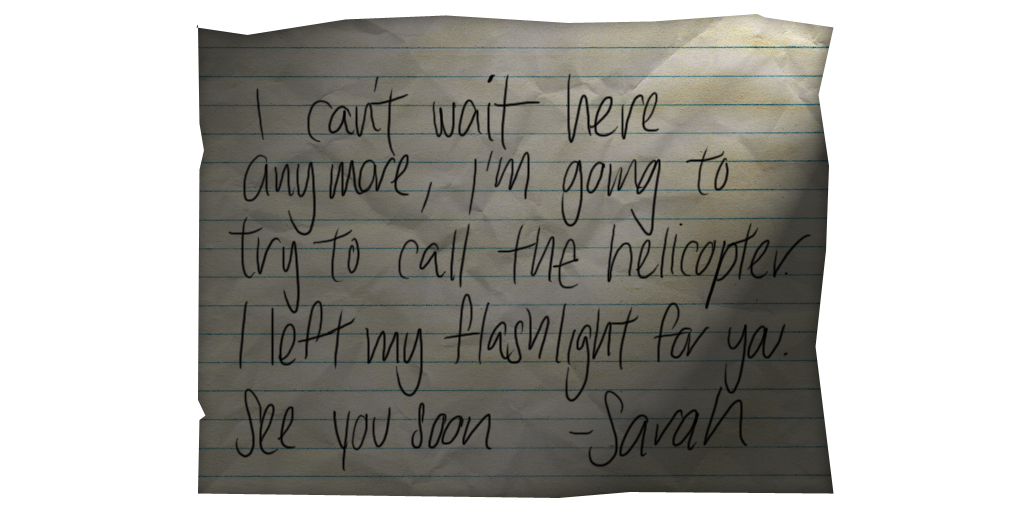 I can't wait here
anymore, I'm going to
try to call the helicopter.
I left my flashlight for you.
See you soon -Sarah